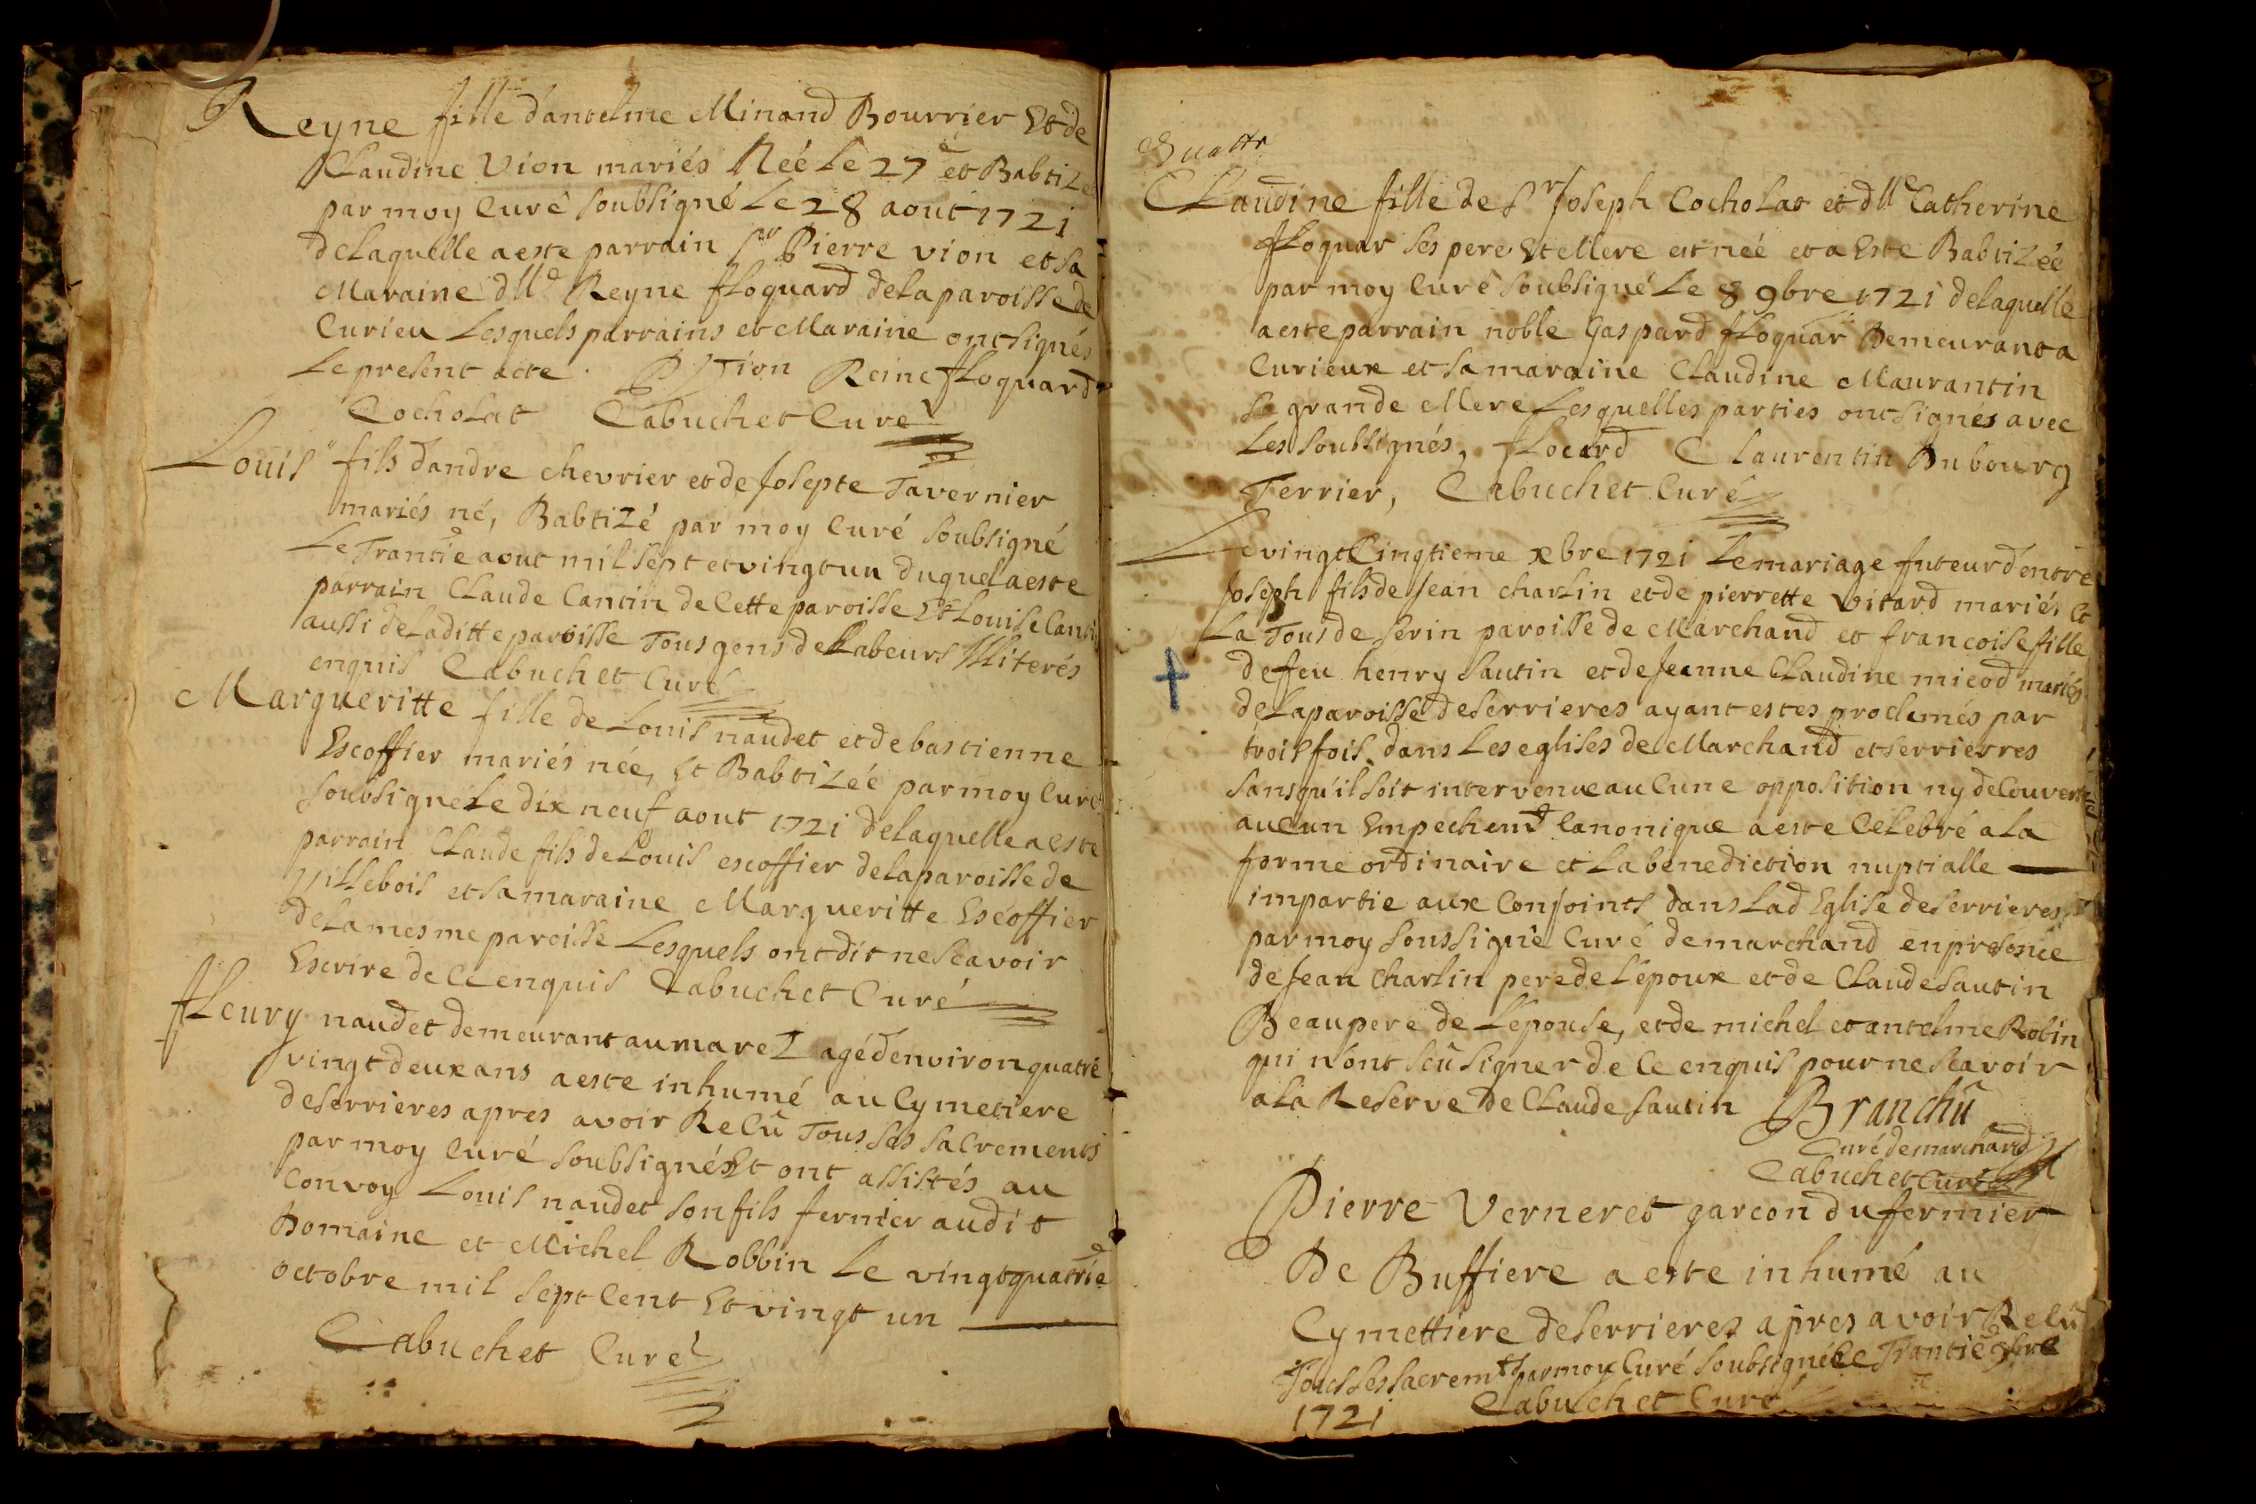 Reyne fille dantelme Minand Bourrier Et de
Claudine Vion mariés Néé Le 27e et Babtizé
par moy Curé soubsigné Le 28 aout 1721
de Laquelle a este parrain Sr Pierre vion et sa
Maraine dlle Reyne ffloquard de la paroisse de
Curieu Lesquels parrains et Maraine ont signés
Le present acte. P Vion Reine ffloquard
Cocholat Cabuchet Curé
Louis fils dandre chevrier et de Josepte Tavernier
mariés né, Babtizé par moy Curé soubsigné
Le Trantie aout mil sept et vingt un duquel a este
parrain Claude Cantin de Cette paroisse Et Louise Canti
aussi de La ditte paroisse Tous gens de Labeurs Illiterés
enquis Cabuchet Curé
Margueritte fille de Louis naudet et de bastienne
Escoffier mariés néé, Et Babtizéé par moy Curé
soubsigné Le dix neuf aout 1721 de laquelle a este
parrain Claude fils de Louis escoffier de la paroisse de
Villebois et sa maraine Margueritte Escoffier
de la mesme paroisse Lesquels ont dit ne scavoir
Escrire de ce enquis Cabuchet Curé
ffleury naudet demeurant au marez agé denviron quatre
vingt deux ans a este inhumé au Cymetiere
de serrieres apres avoir Recû Tous ses sacrements
par moy Curé soubsigné Et ont assistés au
Convoy Louis naudet son fils fermier audit
Domaine et Michel Robbin Le vingtquatrie
octobre mil sept Cent Et vingt un
Cabuchet Curé
Claudine fille de Sr Joseph Cocholat et dlle Catherine
ffloquar ses pere Et Mere est néé et a Este Babtizéé
par moy Curé soubsigné Le 8 9bre 1721 de laquelle
a este parrain noble Gaspard ffloquar Demeurant a
Curieux et sa maraine Claudine Maurantin
sa grande Mere Lesquelles parties ont signés avec
Les soubsignés, fflocard C laurentin Dubourg
Terrier, Cabuchet Curé
Le vingt Cinqtieme xbre 1721 Le mariage futeur dentre
Joseph fils de Jean charlin et de pierrette vitard mariés Et
La Tous de serin paroisse de Marchand et francoise fille
de feu henry sautin et de Jeanne Claudine micod mariés
de La paroisse de serrieres ayant estes proclamés par
trois fois dans Les eglises de Marchand et serrierres
sans quil soit intervenue auCune opposition ny decouvert
auCun Empechemt Canonique a este Celebré a la
forme ordinaire et La benediction nuptialle
impartie aux Conjoints dans Lad Eglise de serrieres
par moy soussigné Curé de marchand en presence
de Jean Charlin pere de Lépoux et de Claude sautin
Beaupere de L'epouse, et de michel et antelme Robin
qui nont scû signer de ce enquis pour ne scavoir
a La Reserve de Claude sautin Branchû
Curé de marchand
Cabuchet Curé
Pierre Verneret garcon du fermier
De Buffiere a este inhumé au
Cymettiere de serrieres apres avoir Recû
Tous ses sacremts par moy Curé soubsigné Le Trantie
1721 Cabuchet Curé